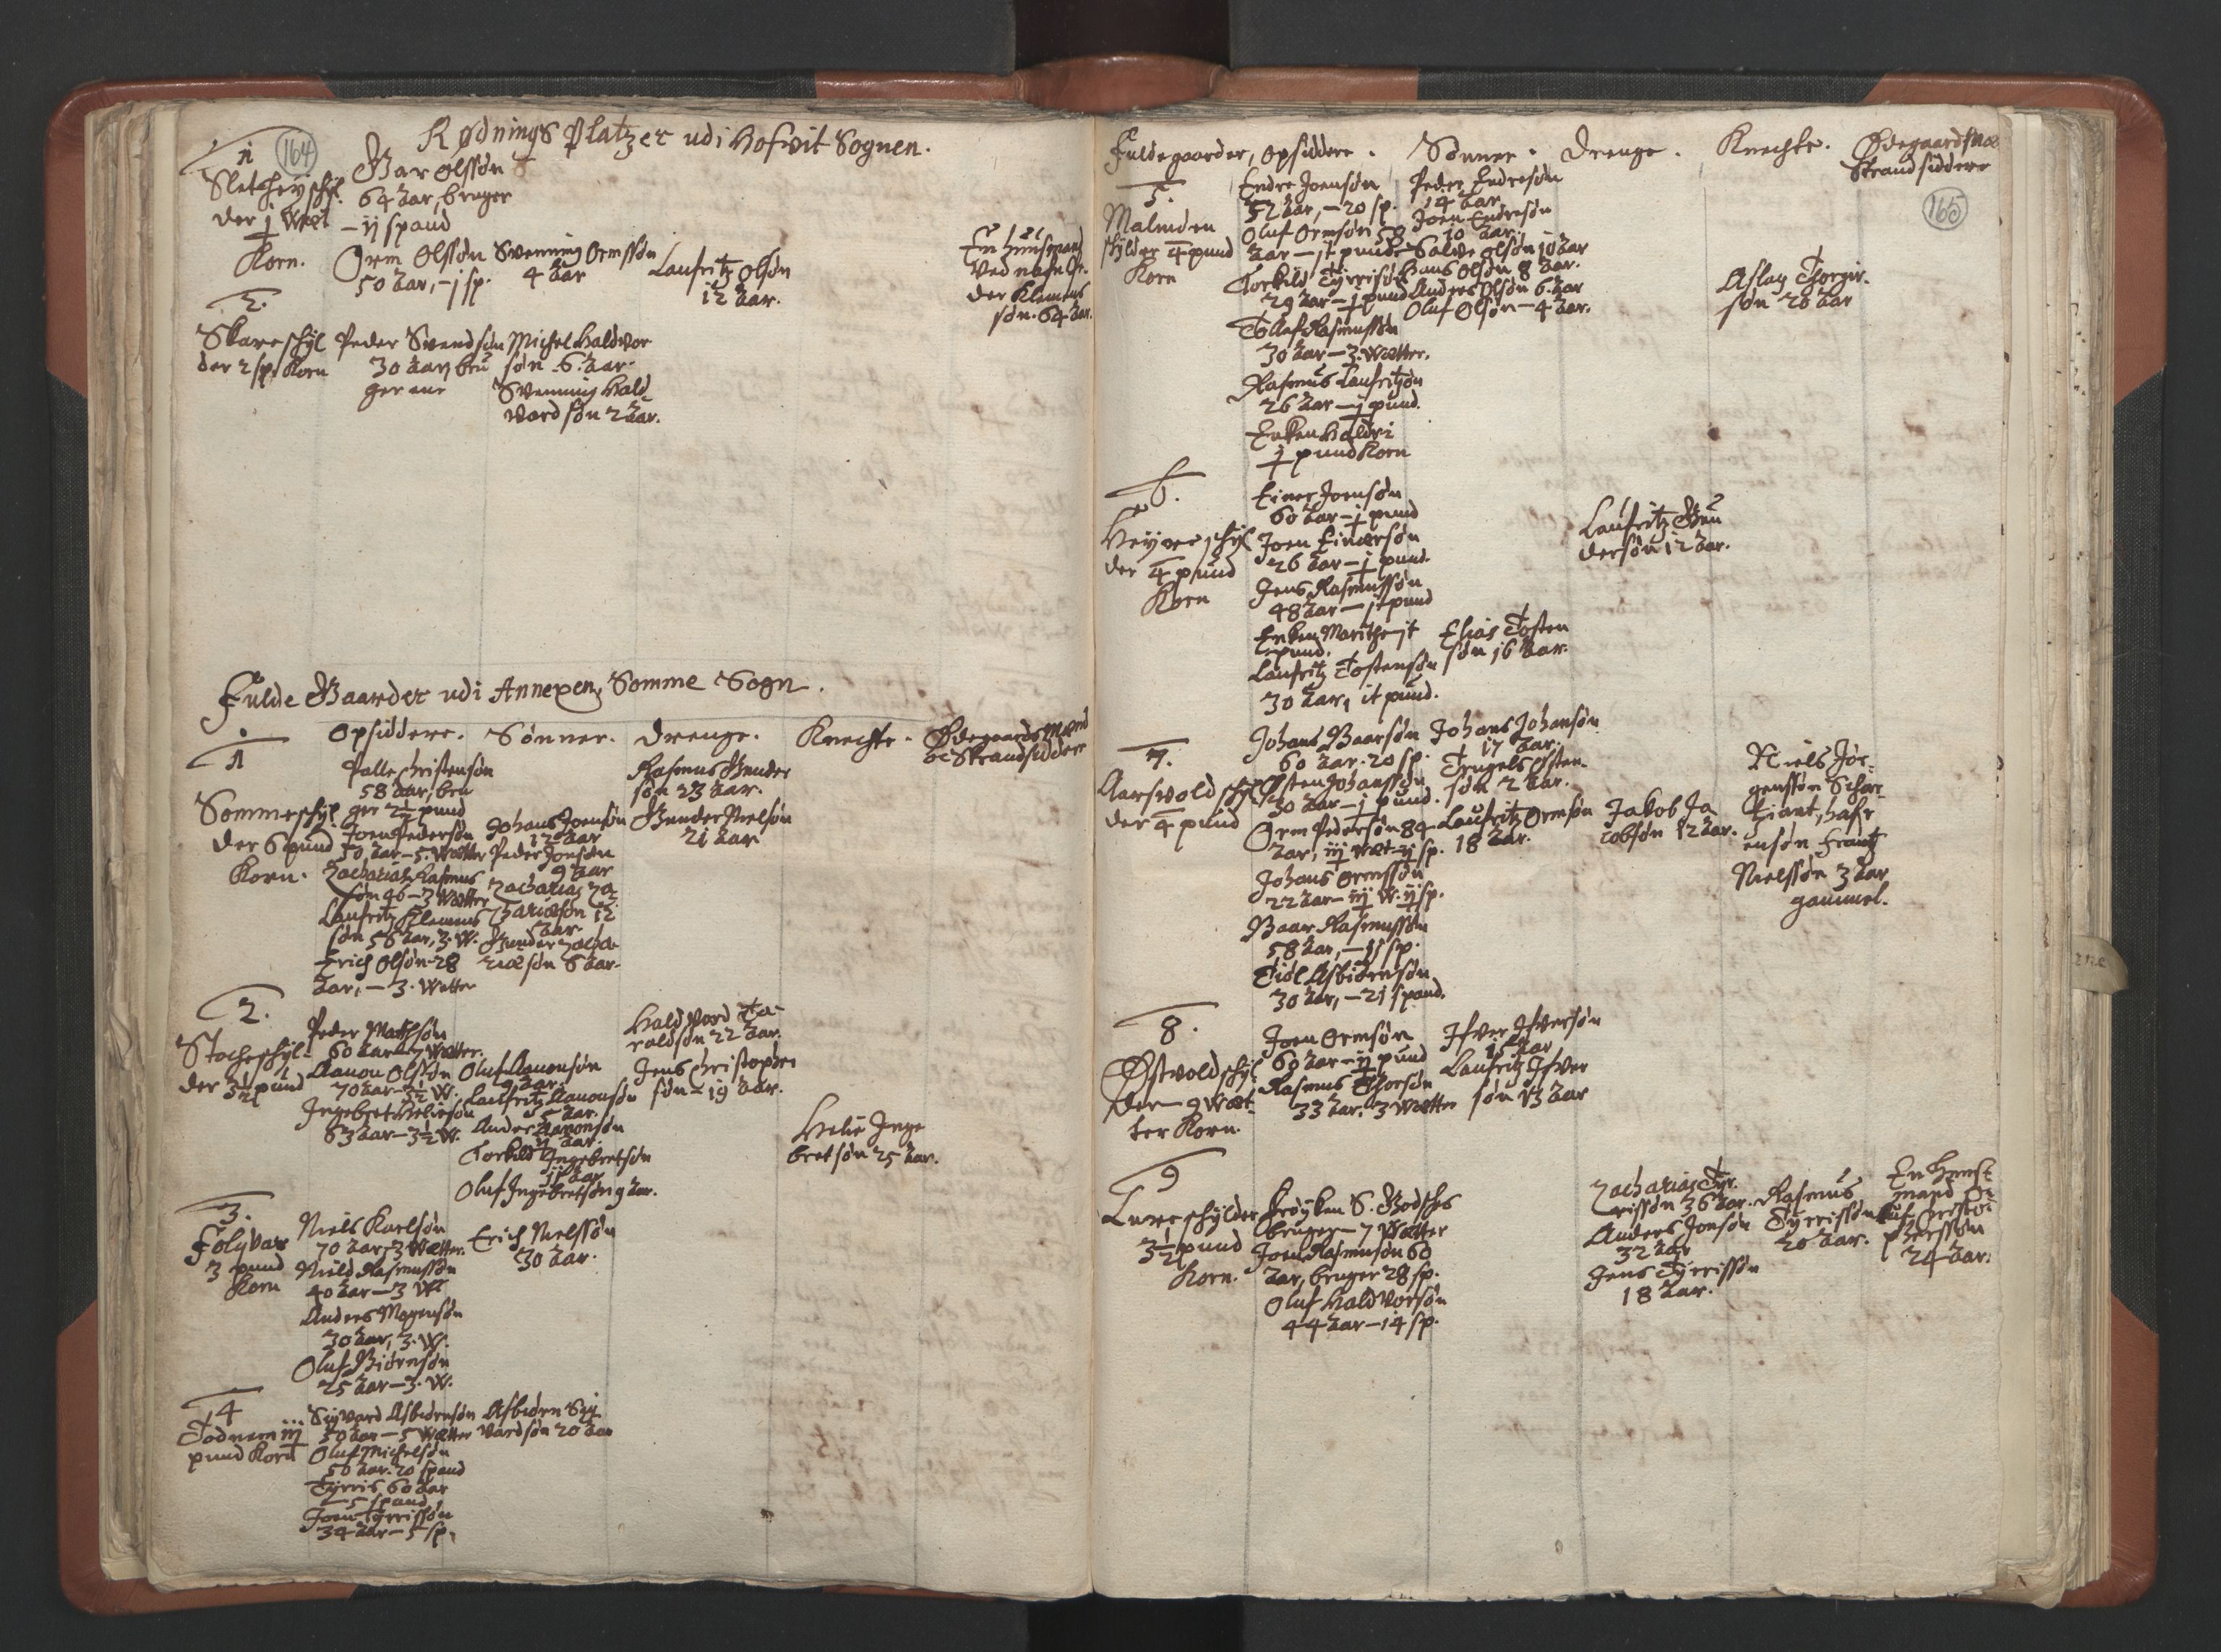 Rødnings Platzer udi Hofvit Sognen.
1
164
Slethey schyl
der j Wæt
Korn.
Bar Olssøn
64 aar, bruger
– ij spand
Orm Olssøn
50 aar, – j sp.
Svenning Ormssøn
4 aar
Laufritz Olsøn
12 aar.
En huusmand
ved nafn
der Klemens
søn. 64 aar.
2.
Skare schyl
der 2 sp. Korn
Peder Svendsøn
30 aar, bru
ger
Michel Haldvor
søn 6. aar.
Svenning Hald
vord søn 2 aar.
Fulde Gaarder udi Annexen, Somme Sogn.
Opsiddere. Sønner. Drenge. Knechte. Ødegaards Mænd
oc Strandsiddere
1
Somme schyl
der 6 pund
Korn.
Palle Christensøn
58 aar, bru
ger 2½ pund
Joen Pedersøn
50 aar – 5. Wætter
Zacharias Rasmus
søn 46 – 3 Wætter
Laufritz Klemens
søn 56 aar, 3. W.
Erich Olsøn 28
aar, – 3. Wætter
Johans Joensøn
12 aar
Peder Jonsøn
9 aar
Zacharias Za
chariæsøn 12
aar.
Gunder Zacha
riæ søn 6 aar.
Rasmus Gunder
søn 23 aar.
Gunder Nielsøn
21 aar
2.
Stocke schyl
der 3½ pund
Peder Mathsøn
60 aar – 7 Wætter.
Aanon Olssøn
70 aar – 3½ W.
Ingebret Heliesøn
63 aar – 3½ W.
Oluf Aanonsøn
9 aar.
Laufritz Aanonsøn
5 aar.
Anders Aanonsøn
aar.
Torkild Ingebretsøn
aar
Oluf Ingebretsøn 9 aar.
Haldvord Ta
raldsøn 22 aar.
Jens Christopher
søn – 19 aar.
Helie Inge
bretsøn 25 aar.
3.
Følgvar
3 pund
Korn
Niels Karlsøn
70 aar, 3 Wætter.
Niels Rasmussøn
40 aar – 3 W
Anders Mogensøn
30 aar, 3. W.
Oluf Biørnsøn
25 aar – 3. W.
Erich Nielssøn
30 aar.
4
Todnem iij
pund Korn
Sigvard Asbiørnsøn
50 aar – 5 Wætter
Oluf Michelsøn
50 aar. 20 spand
Tyrris 60 aar
– 5 spand
Joen Tyrrissøn
34 aar – 5 sp.
Asbiørn Sig
vardsøn 20 aar
Fuldegaarder, Opsiddere. Sønner. Drenge. Knechte. Ødegaardsmæ
Strandsiddere
165
5.
Malmden
schylder 4 pund
Korn
Endre Joensøn
52 aar, – 20 sp.
Oluf Ormsøn 50
aar – jt pund
Torkild Tyrrisøn
29 aar – j pund
Tollef Rasmussøn
30 aar – 3. Wætter.
Rasmus Laufritzøn
26 aar – j pund.
Enken Haldri
j pund Korn
Peder Endresøn
14 aar
Joen Endresøn
10 aar.
Salve Olsøn 10 aar
Hans Olsøn 8 aar.
Anders Olsøn 6. aar
Oluf Olsøn – 4 aar.
Aslag Thorgir
søn 26 aar
6.
Heyyre schyl
der 4 pund
Korn
Einer Joensøn
60 aar – j pund
Joen Einersøn
26 aar – j pund.
Jens Rasmussøn
48 aar – jt pund
Enken Marithe jt
pund.
Laufritz Tostensøn
30 aar, it pund.
Elias Tosten
søn 16 aar.
Laufritz Gun
dersøn 12 aar.
7.
Aarsvold schyl
der 4 pund
Johans Baarsøn
60 aar. 20 sp.
Østen Johanssøn
30 aar – j pund.
Orm Pedersøn 84
aar, iij wæt ij sp.
Johans Ormssøn
22 aar – iij W. ij sp.
Baar Rasmussøn
58 aar, – 15 sp.
Tiøl Asbiørnsøn
30 aar, – 21 spand.
Johans Johansøn
17 aar.
Trugels Østen
søn 2 aar.
Laufritz Ormsøn
18 aar.
Jakob Ja
cobsøn 12 aar.
Niels Jør
genssøn Schar
tziant, hafr
en søn Frantz
Nielssøn 3 aar
gammel.
8.
Østvold schyl
der – 9 Wæt
ter Korn.
Joen Ormsøn
60 aar – ij pund
Rasmus Thorsøn
33 aar. 3 Wætter
Ifver Ifversøn
15 aar
Laufritz Ifver
søn 13 aar
9
Lure schylder
3½ pund
Korn.
Frøyken S. Godsches
bruger – 7 Wætter
Joen Rasmusøn 60
aar, bruger 28 sp.
Oluf Haldvorsøn
44 aar – 14 sp.
Zacharias Tyr
rissøn 36 aar.
Anders Jonsøn
32 aar
Jens Tyrrissøn
18 aar.
Rasmus
Tyrrissøn
20 aar.
En Huus
mand
Christo
pherssøn
24 aar.